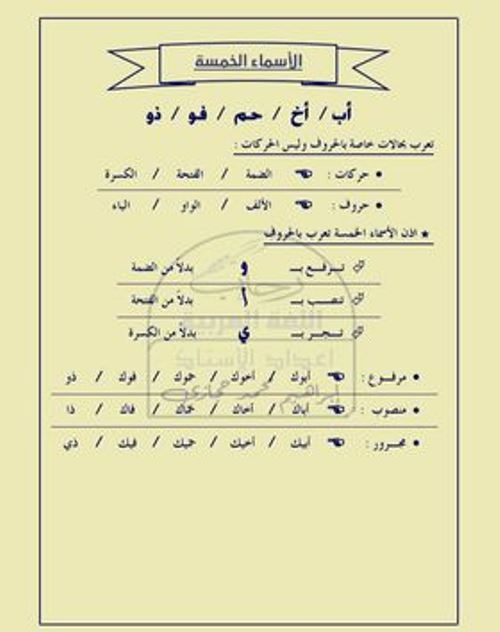 الأسماء الخمسة
أب / أخ / حم / فو / ذو
تعرب بحالات خاصة بالحروف وليس الحركات :
• حركات : ☚ الضمة / الفتحة / الكسرة
• حروف : ☚ الألف / الواو / الياء
★ اذن الأسماء الخمسة تعرب بالحروف
تــرفــع بـــ و بدلاً من الضمة
تنصــب بـــ ا بدلاً من الفتحة
تـــجــر بـــ ي بدلاً من الكسرة
• مرفــوع : ☚ أبوك / أخوك / حموك / فوك / ذو
• منصوب : ☚ أباك / أخاك / حماك / فاك / ذا
• مجــرور : ☚ أبيك / أخيك / حميك / فيك / ذي
رحاب
اللغة العربية
إعداد الأستاذ
إبراهيم محمد حجازي